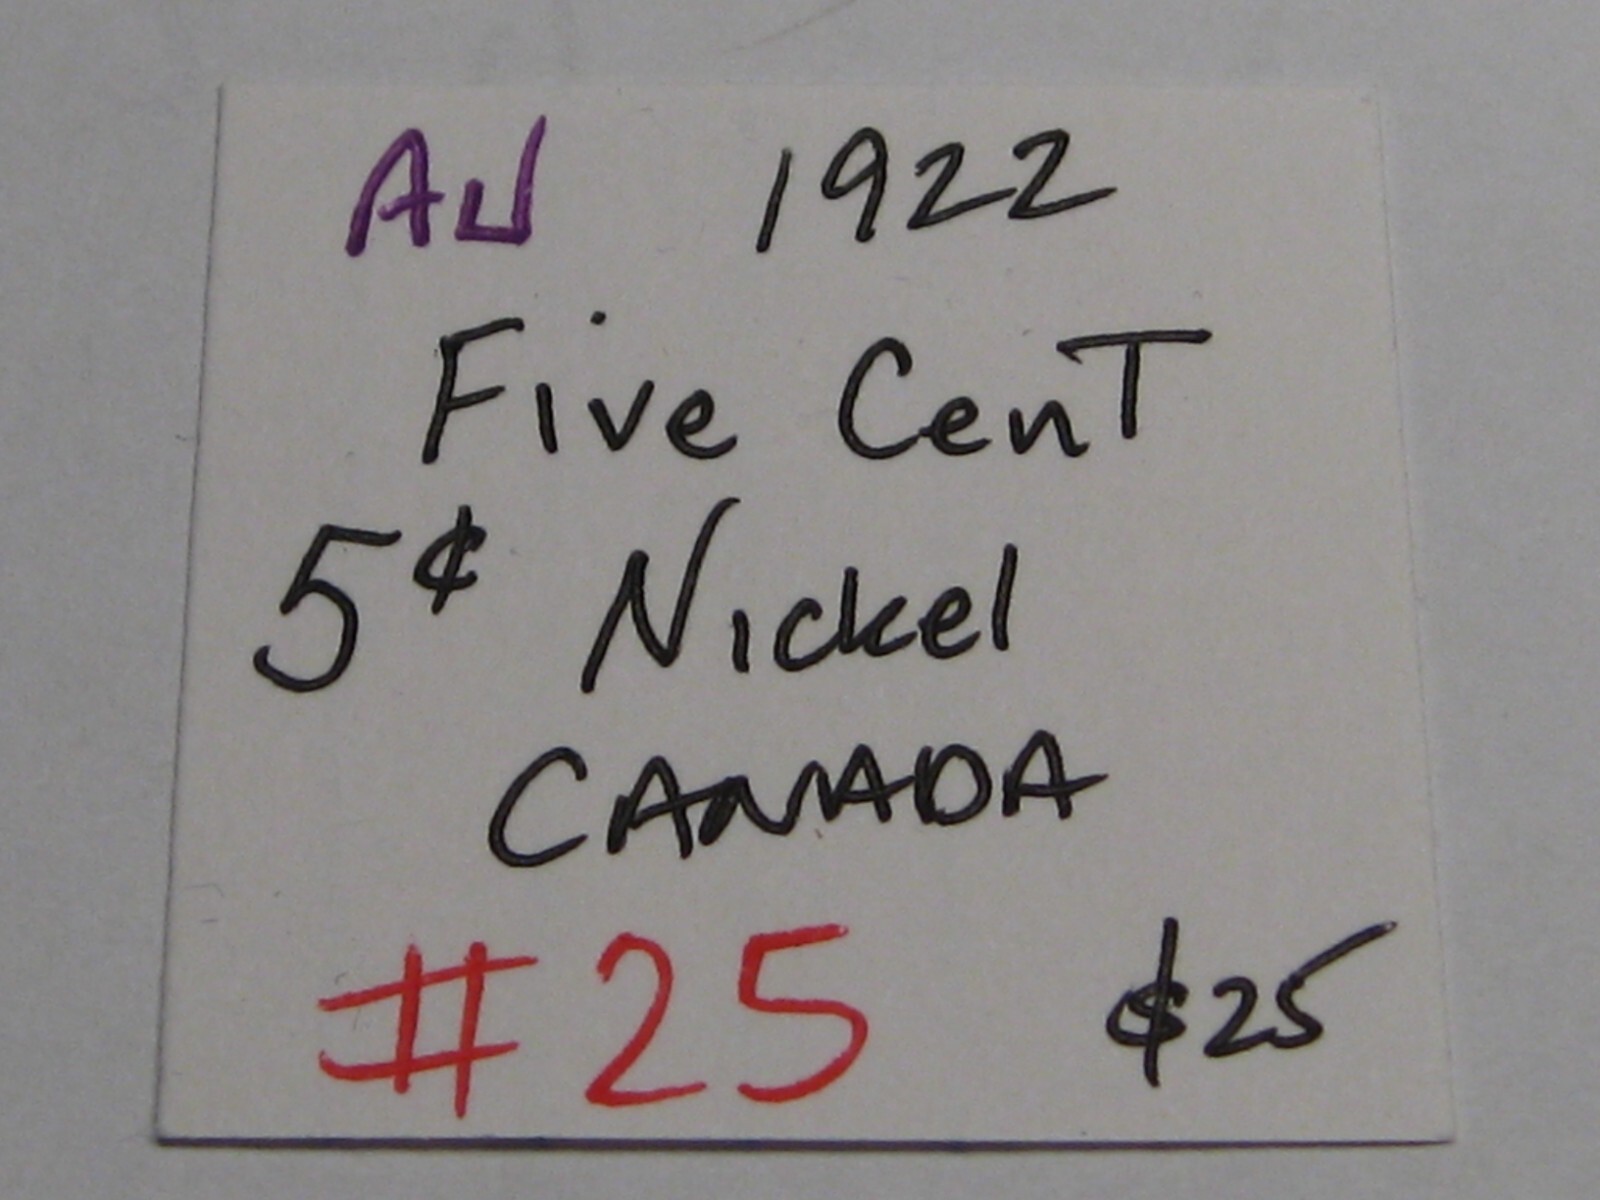 AU 1922
Five Cent
5¢ Nickel
CANADA
#25 $25